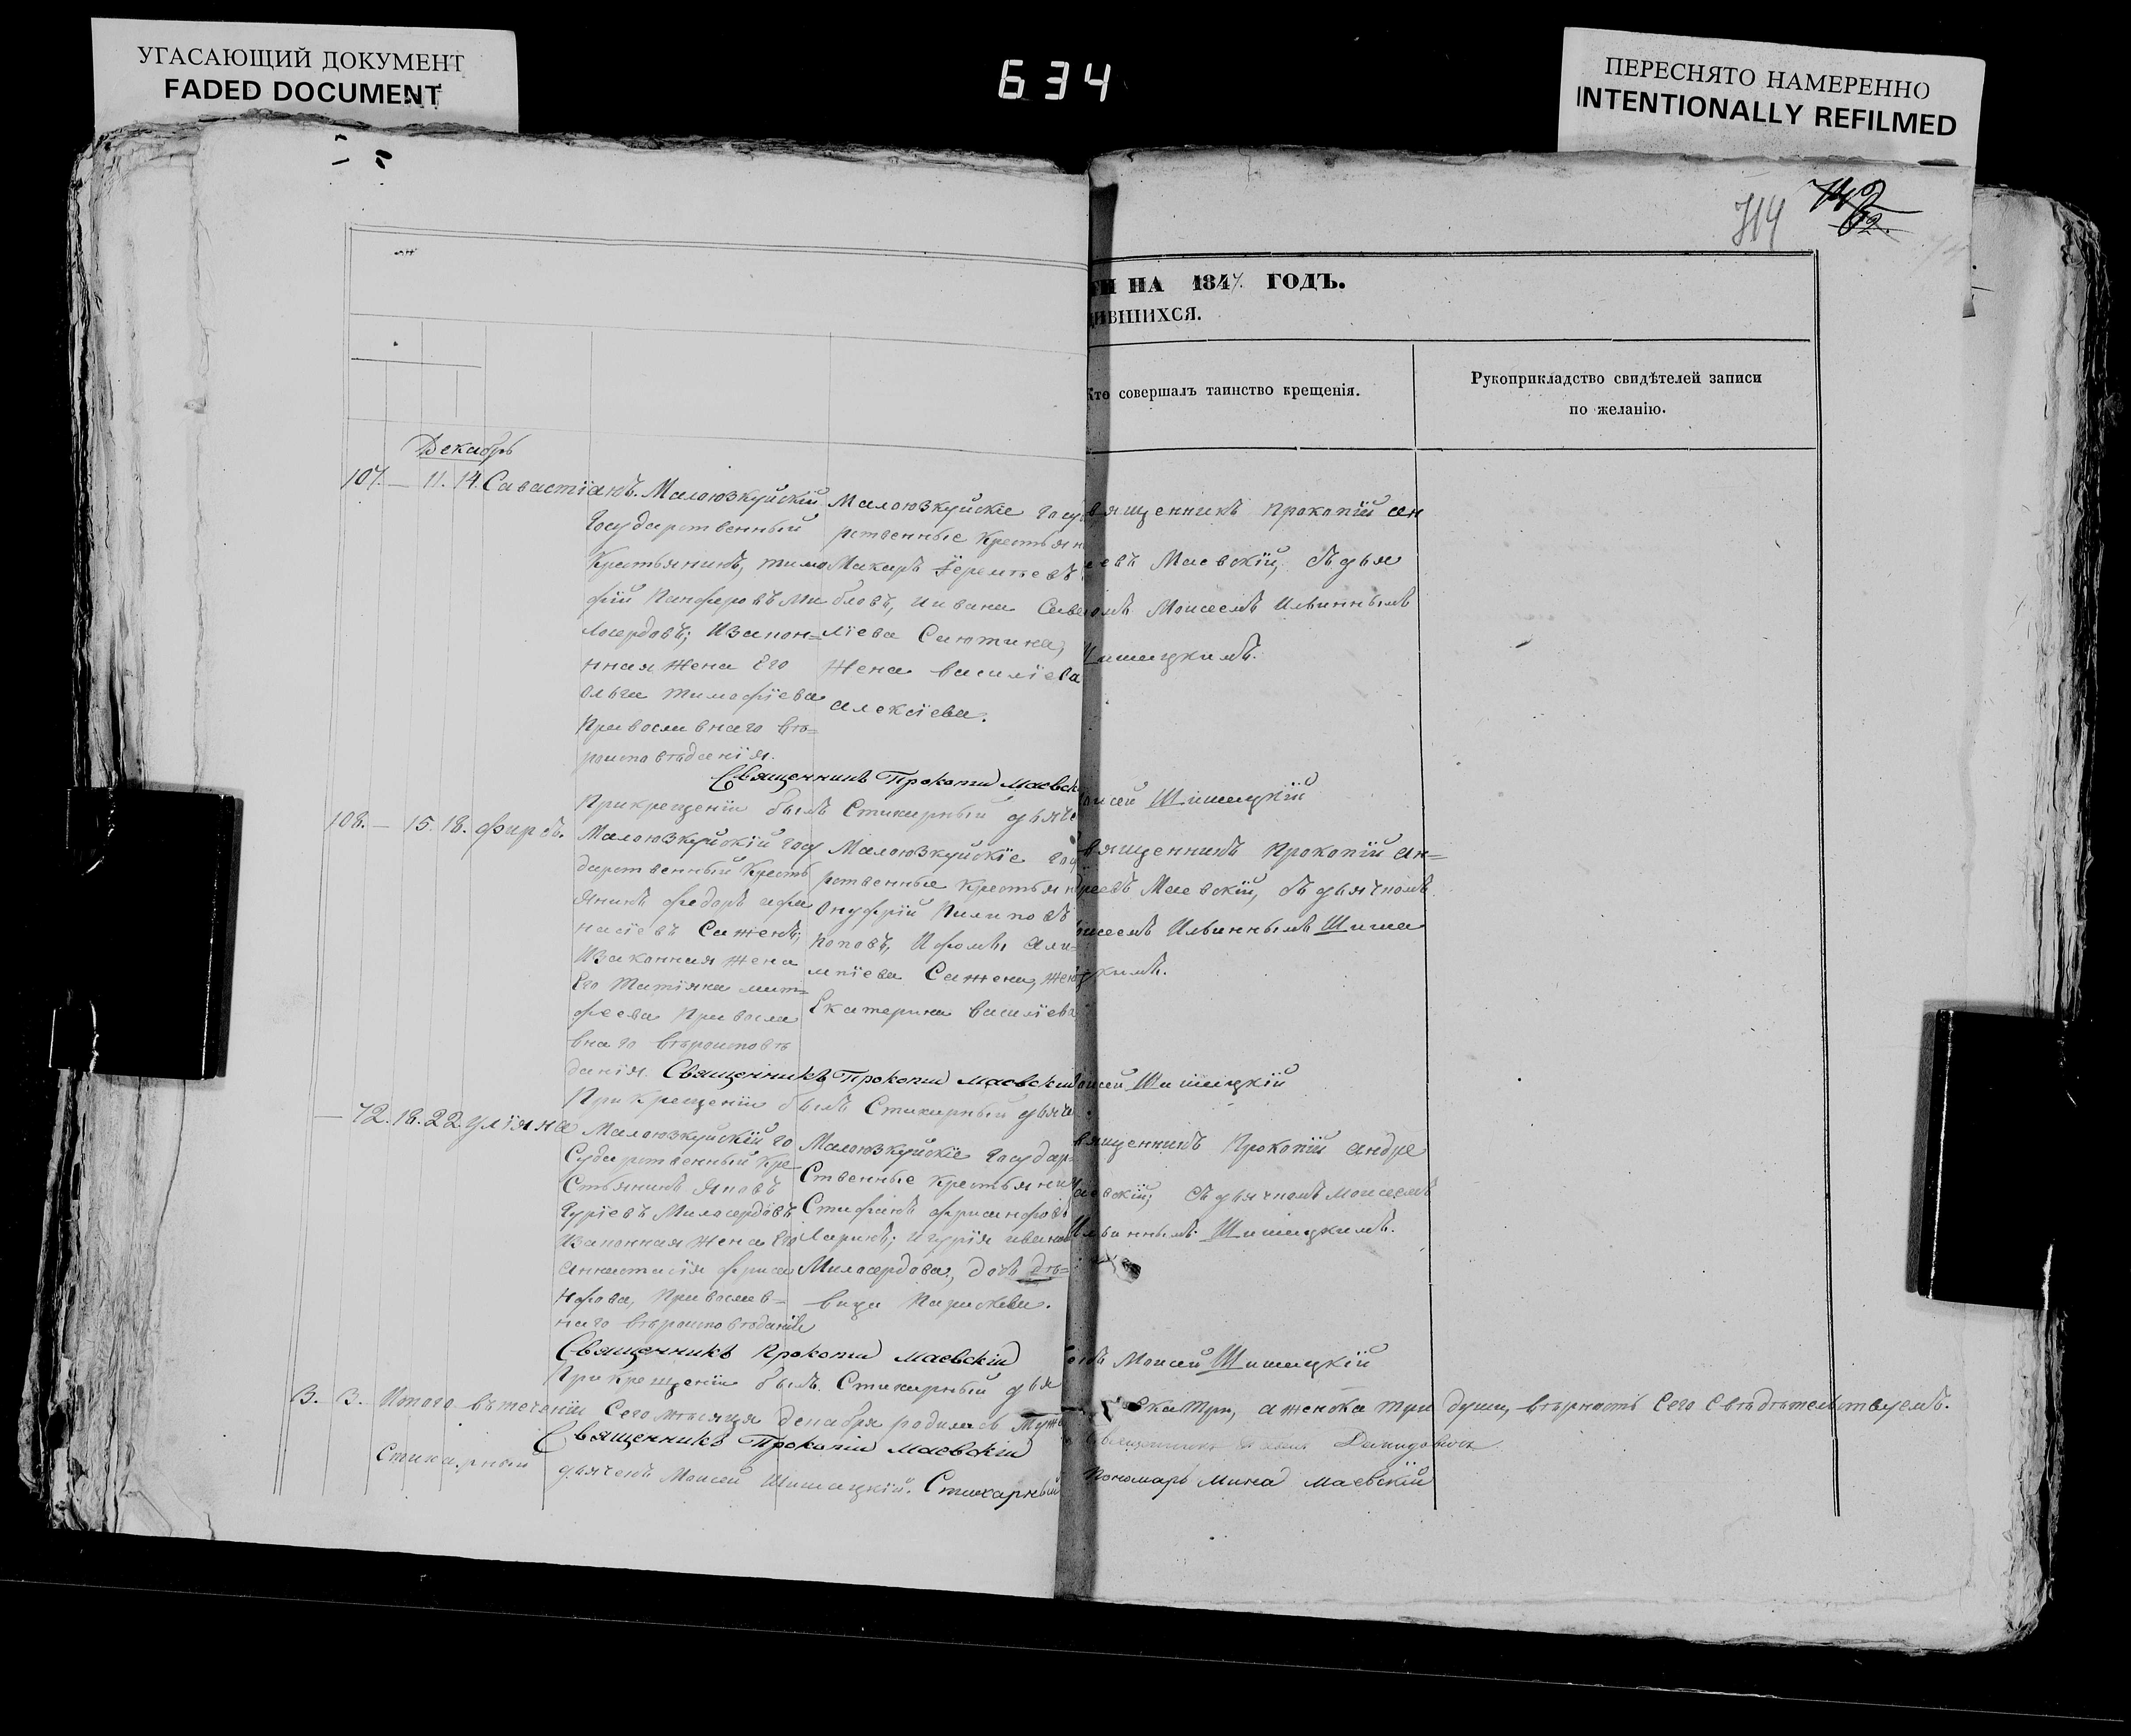 УГАСАЮЩИЙ ДОКУМЕНТ
FADED DOCUMENT
634
ПЕРЕСНЯТО НАМЕРЕННО
INTENTIONALLY REFILMED
714
ГИ НА 1847. ГОДЪ.
ДИВШИХСЯ.
Кто совершалъ таинство крещенія.
Рукоприкладство свидѣтелей записи
по желанію.
Декабрь
107. — 11. 14. Савастіянъ.
Малоюзкуйскій
Государственный
Крестьянинъ, тимо
фій Панферовъ Ми
лосердовъ; Изакон=
ная жена Его
Ольга тимофіева
Православнаго вѣ=
роисповѣданія.
Малоюзкуйскіе Госу
рственные Крестьян
Макаръ Іеремѣевъ
бловъ, иивана Саве
ліева Саютина,
жена василіева
алексіева.
вященникъ прокопій ан
еевъ Маевскій, съ дья
омъ Моисеемъ Ильиннымъ
Шишацкимъ.
Священникъ Прокопій Маевск
При крещеніи былъ Стихирный дьяче
оисей Шишацкій
108. — 15. 18. Фирсъ.
Малоюзкуйскій Госу
дарственный Кресть
янинъ федоръ афа
насіевъ Саженъ;
Изаконная жена
Его Татіяна мит=
феева Правосла
внаго вѣроисповѣ
данія.
Малоюзкуйскіе Гос
рственные Крестьян
Онуфрій Пилиповъ
поповъ, Ифомы Али=
мпіева Сажена, жен
Екатерина василіева
вященникъ Прокопій Ан=
дреевъ Маевскій, съ дьячкомъ
оисеемъ Ильиннымъ Шиша
цкимъ.
Священникъ Прокопій Маевскій
При крещеніи былъ Стихирный дьяче
оисей Шишацкій
— 72. 18. 22. Уліяна
Малоюзкуйскій го
Сударственный Кре
Стьянинъ Яковъ
Гуріевъ Милосердовъ
Изаконная жена Его
Анастасія фриса
нфова, Православ=
наго вѣроисповѣданія
Малоюзкуйскіе Государ=
Ственные Крестьяни
Стифанъ фрисанфовъ
Ларинъ; и гурія иванов
Милосердова, дочь дѣ=
вица Параскева.
вященникъ Прокопій андре
аевскій, съ дьячкомъ Моисеемъ
Ильиннымъ Шишацкимъ.
Священникъ Прокопій Маевскій
При крещеніи былъ Стихирный дья
окъ Моисей Шишацкій
3. 3. Итого въ теченіи Сего мѣсяца декабря родилось Мужеска три, а женска три души, вѣрность Сего Свѣдѣтельствуемъ.
Священникъ Прокопій Маевскій
Священникъ Давидовичъ
Стихирный дьячекъ Моисей Шишацкій. Стихарный Пономарь Мина Маевскій